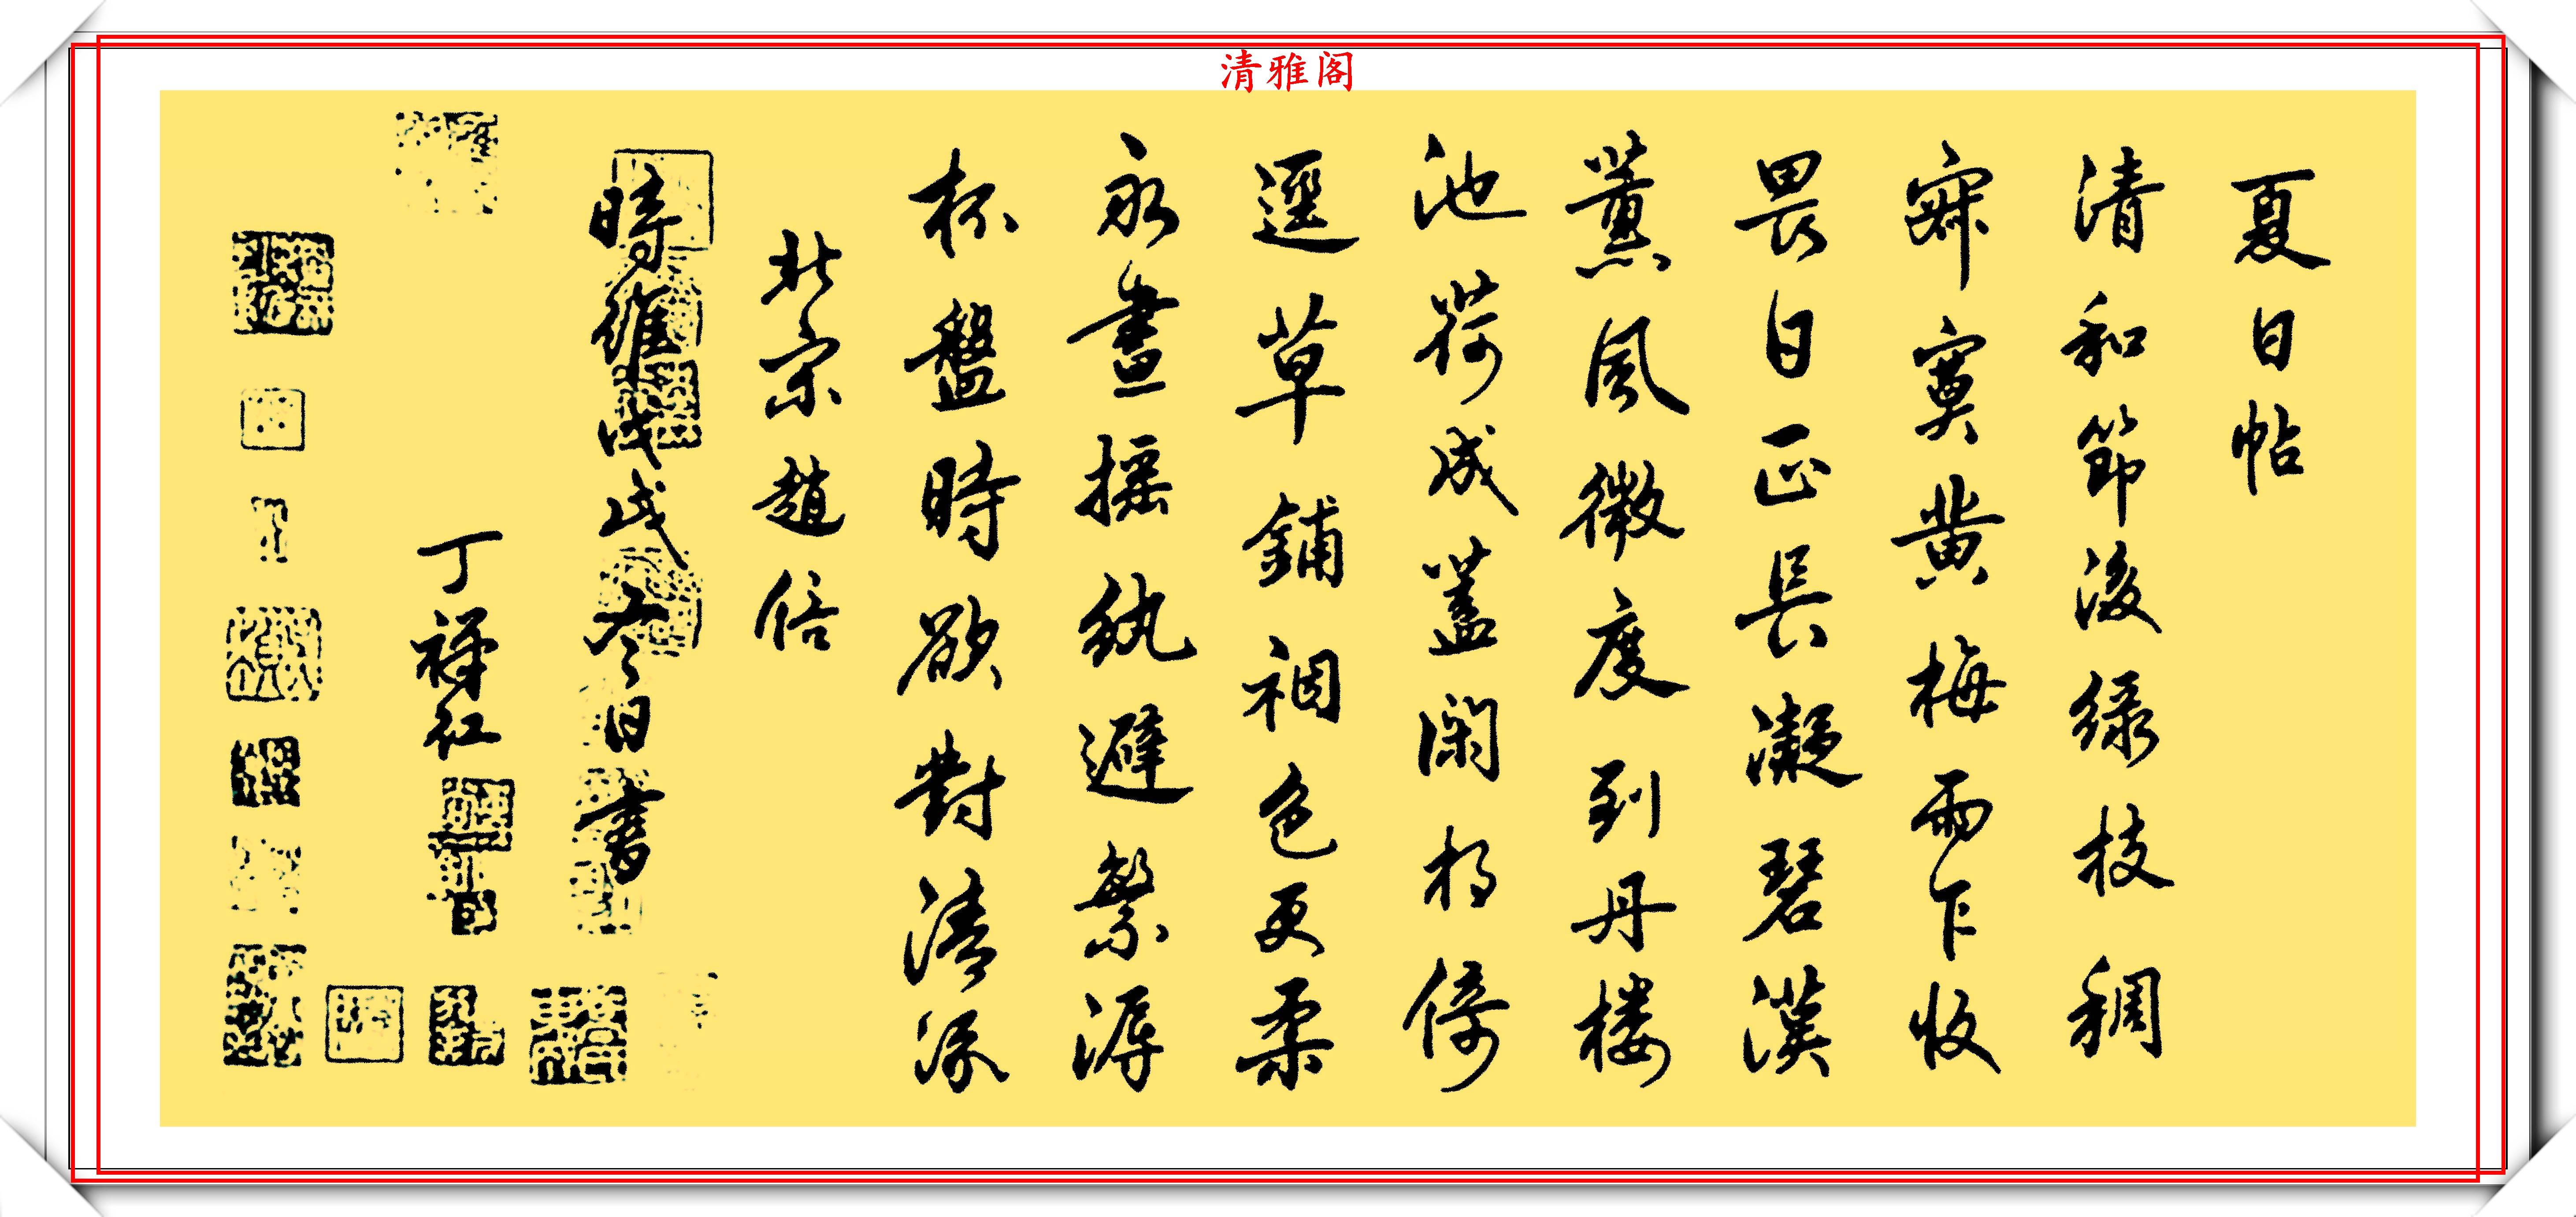 清雅阁
夏日帖
清和節後綠枝稠
寂寞黃梅雨乍收
畏日正長凝碧漢
薰風微度到丹樓
池荷成蓋閑相倚
逕草鋪裀色更柔
永晝搖紈避繁溽
杯盤時欲對清流
北宋趙佶
時維戊戌冬日書
丁禄红